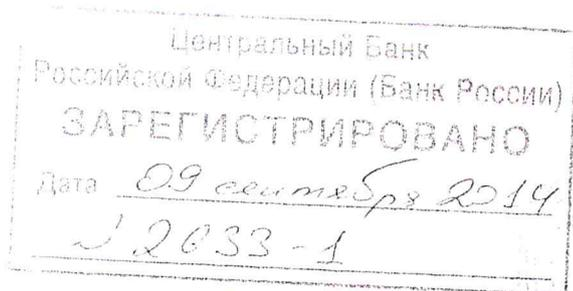 Центральный Банк
Российской Федерации (Банк России)
ЗАРЕГИСТРИРОВАНО
Дата 09 сентября 2014
№ 2033-1